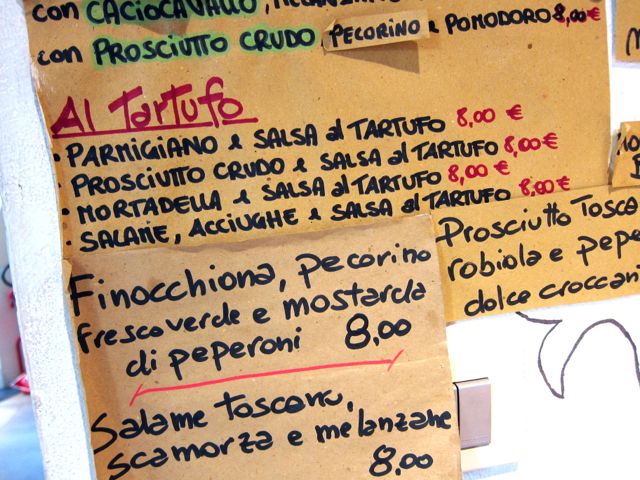 con CACIOCAVALLO,
con PROSCIUTTO CRUDO, PECORINO e POMODORO 8,00€
Al TARTUFO
· PARMIGIANO e SALSA al TARTUFO 8,00 €
· PROSCIUTTO CRUDO e SALSA al TARTUFO 8,00€
· MORTADELLA e SALSA al TARTUFO 8,00 €
· SALAME, ACCIUGHE e SALSA al TARTUFO 8,00€
Finocchiona, pecorino
fresco verde e mostarda
di peperoni 8,00
Salame toscano,
scamorza e melanzane
8,00
Prosciutto Tosca
robiola e pepe
dolce croccan
10